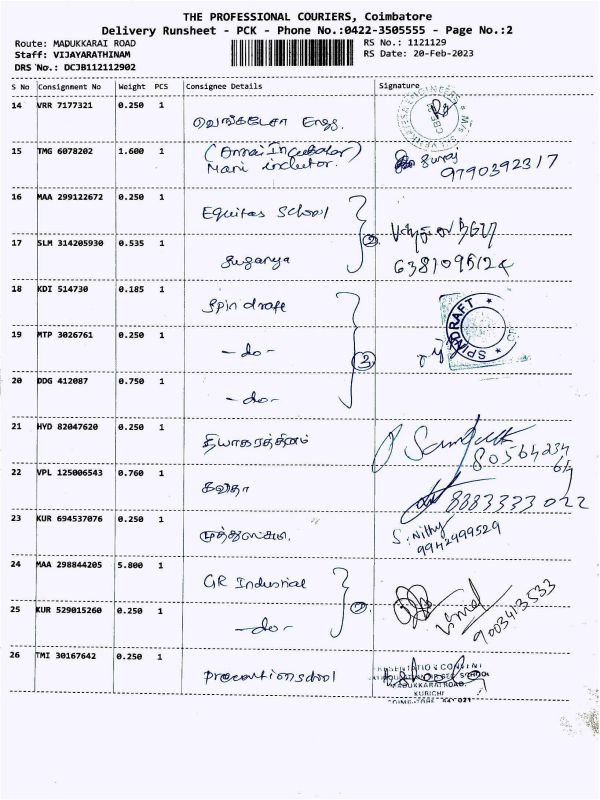 THE PROFESSIONAL COURIERS, Coimbatore
Delivery Runsheet - PCK - Phone No.:0422-3505555 - Page No.:2
Route: MADUKKARAI ROAD RS No.: 1121129
Staff: VIJAYARATHINAM RS Date: 20-Feb-2023
DRS No.: DCJB112112902
S No Consignment No Weight PCS Consignee Details Signature
14 VRR 7177321 0.250 1
வெங்கடேசா Engg.
15 TMG 6078202 1.600 1 (Annai Incubator)
Mani
9790392317
16 MAA 299122672 0.250 1
Equitas School
17 SLM 314205930 0.535 1 2
Suganya
18 KDI 514730 0.185 1
Spin draft
SPINDRAFT
19 MTP 3026761 0.250 1
-do- 3
20 DDG 412087 0.750 1
-do-
21 HYD 82047620 0.250 1
தியாகரத்தினம்
22 VPL 125006543 0.760 1
கவிதா 8883333022
23 KUR 694537076 0.250 1
S. Nithy
9942999529
24 MAA 298844205 5.800 1
GR Industrial
25 KUR 529015260 0.250 1
-do- 9003413533
26 TMI 30167642 0.250 1
MADUKKARAI ROAD,
KURICHI